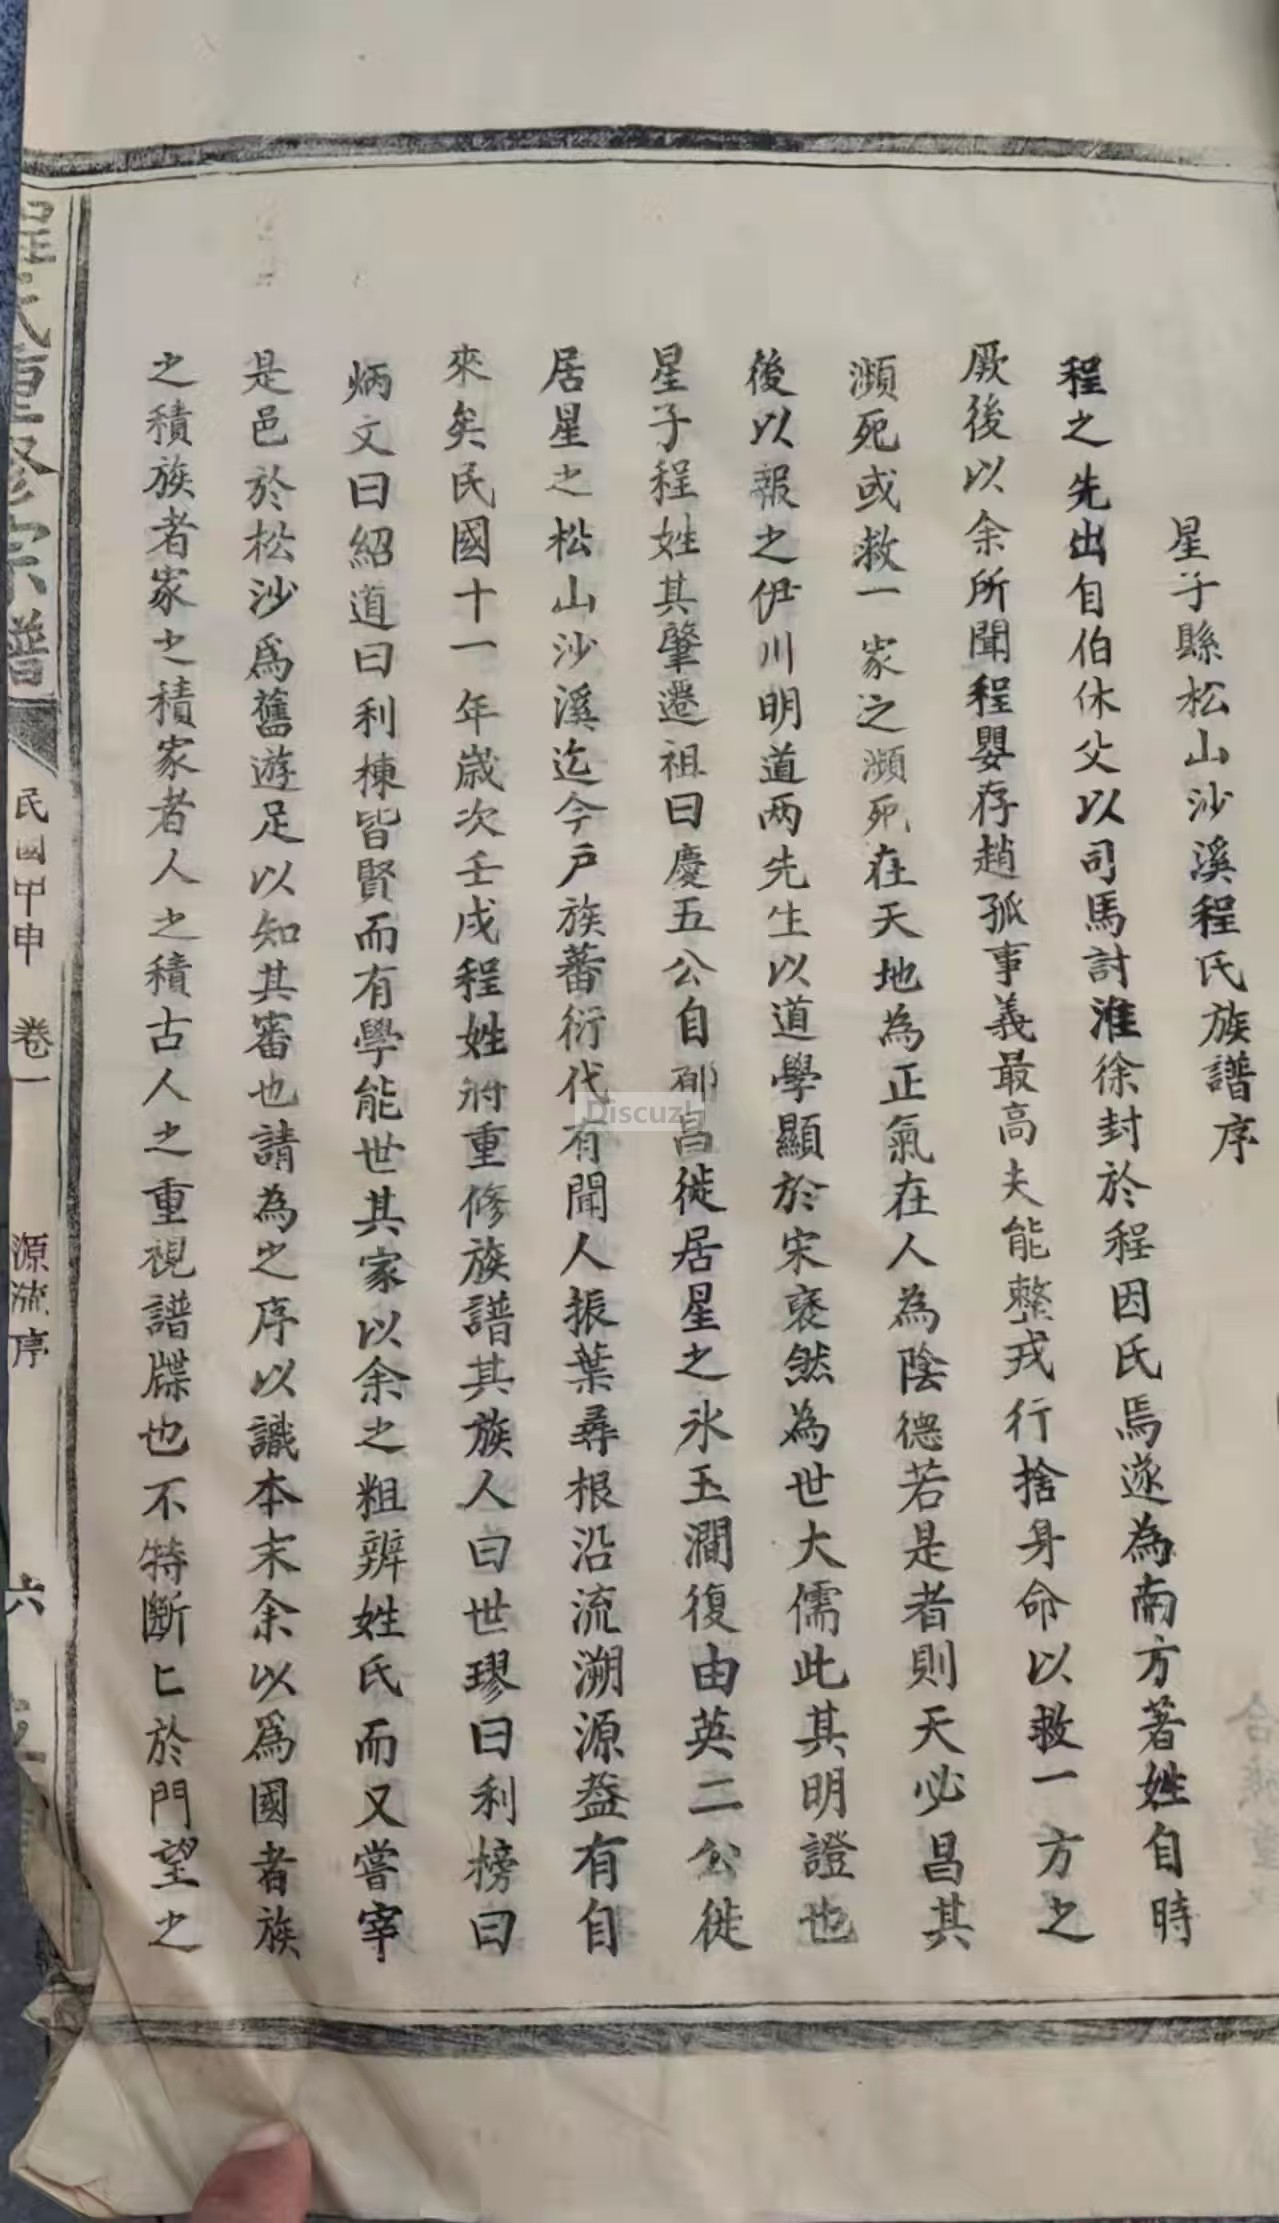 星子縣松山沙溪程氏族譜序
程之先出自伯休父以司馬討淮徐封於程因氏焉遂為南方著姓自時
厥後以余所聞程嬰存趙孤事義最高夫能整戎行捨身命以救一方之
瀕死或救一家之瀕死在天地為正氣在人為陰德若是者則天必昌其
後以報之伊川明道两先生以道學顯於宋裒然為世大儒此其明證也
星子程姓其肇遷祖曰慶五公自都昌徙居星之氷玉澗復由英二公徙
居星之松山沙溪迄今戸族蕃衍代有聞人振葉尋根沿流溯源葢有自
來矣民國十一年歲次壬戌程姓將重修族譜其族人曰世璆曰利榜曰
炳文曰紹道曰利棟皆賢而有學能世其家以余之粗辨姓氏而又嘗宰
是邑於松沙爲舊遊足以知其審也請為之序以識本末余以爲國者族
之積族者家之積家者人之積古人之重視譜牒也不特斷匕於門望之
程氏重修宗譜
民國甲申
卷一
源流序
六
Discuz!